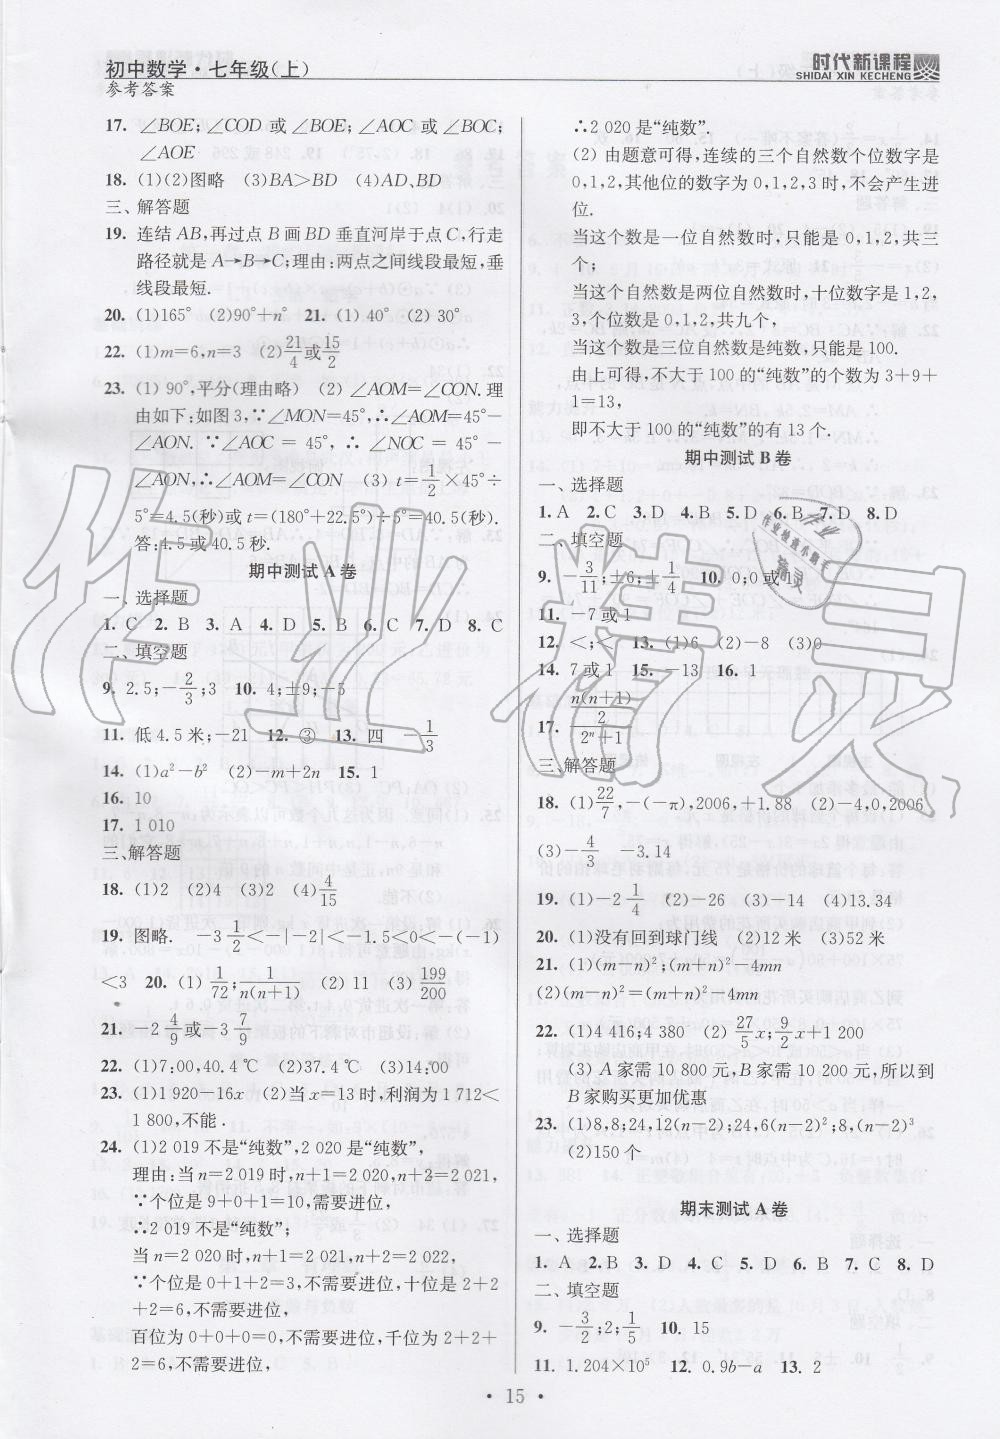 初中数学·七年级(上)
参考答案
时代新课程
SHIDAI XIN KECHENG
17. ∠BOE; ∠COD 或 ∠BOE; ∠AOC 或 ∠BOC;
∠AOE
18. (1)(2)图略 (3)BA>BD (4)AD,BD
三、解答题
19. 连结 AB,再过点 B 画 BD 垂直河岸于点 C,行走
路径就是 A→B→C;理由:两点之间线段最短,垂
线段最短.
20. (1)165° (2)90°+n° 21. (1) 40° (2) 30°
22. (1)m=6,n=3 (2)21/4或15/2
23. (1) 90°,平分(理由略) (2) ∠AOM=∠CON. 理
由如下:如图 3,∵∠MON=45°,∴∠AOM=45°−
∠AON. ∵∠AOC = 45°, ∴ ∠NOC = 45° −
∠AON,∴∠AOM=∠CON (3) t=1/2×45°÷
5°=4.5(秒)或 t=(180°+22.5°)÷5°=40.5(秒).
答:4.5 或 40.5 秒.
期中测试 A 卷
一、选择题
1. C 2. B 3. A 4. D 5. B 6. C 7. D 8. C
二、填空题
9. 2.5;−2/3;3 10. 4;±9;−5
11. 低 4.5 米;−21 12. ③ 13. 四 −1/3
14. (1)a²−b² (2)−m+2n 15. 1
16. 10
17. 1 010
三、解答题
18. (1)2 (2)4 (3)2 (4)4/15
19. 图略. −3 1/2<−|−2|<−1.5<0<−(−1)
<3 20. (1) 1/72; 1/n(n+1) (2) 11 (3) 199/200
21. −2 4/9或−3 7/9
22. (1)7:00,40.4℃ (2)37.4℃ (3)14:00
23. (1)1 920−16x (2)当 x=13 时,利润为 1 712<
1 800,不能.
24. (1)2 019 不是“纯数”,2 020 是“纯数”,
理由:当 n=2 019 时,n+1=2 020,n+2=2 021,
∵个位是 9+0+1=10,需要进位,
∴2 019 不是“纯数”;
当 n=2 020 时,n+1=2 021,n+2=2 022,
∵个位是 0+1+2=3,不需要进位,十位是 2+2
+2=6,不需要进位,
百位为 0+0+0=0,不需要进位,千位为 2+2+
2=6,不需要进位,
∴2 020 是“纯数”.
(2) 由题意可得,连续的三个自然数个位数字是
0,1,2,其他位的数字为 0,1,2,3 时,不会产生进
位.
当这个数是一位自然数时,只能是 0,1,2,共三
个;
当这个自然数是两位自然数时,十位数字是 1,2,
3,个位数是 0,1,2,共九个,
当这个数是三位自然数是纯数,只能是 100.
由上可得,不大于 100 的“纯数”的个数为 3+9+
1=13,
即不大于 100 的“纯数”的有 13 个.
期中测试 B 卷
一、选择题
1. A 2. C 3. D 4. B 5. D 6. B 7. D 8. D
二、填空题
9. −3/11;±6;±1/4 10. 0;0或1
11. −7 或 1
12. <;< 13. (1)6 (2)−8 (3)0
14. 7 或 1 15. −13 16. 1
17. (n(n+1)/2)/(2ⁿ+1)
三、解答题
18. (1)22/7,−(−π),2006,+1.88 (2)−4,0,2006
(3)−4/3 −3.14
19. (1)−2 1/4 (2)−26 (3)−14 (4)13.34
20. (1)没有回到球门线 (2)12 米 (3)52 米
21. (1)(m−n)²;(m+n)²−4mn
(2)(m−n)²=(m+n)²−4mn
22. (1)4 416;4 380 (2) 27/5x; 9/2x+1 200
(3) A 家需 10 800 元,B 家需 10 200 元,所以到
B 家购买更加优惠
23. (1)8,8;24,12(n−2);24,6(n−2)²;8,(n−2)³
(2)150 个
期末测试 A 卷
一、选择题
1. A 2. B 3. D 4. C 5. D 6. B 7. C 8. D
二、填空题
9. −3/2;2;1/5 10. 15
11. 1.204×10⁵ 12. 0.9b−a 13. 2
· 15 ·
作业精灵